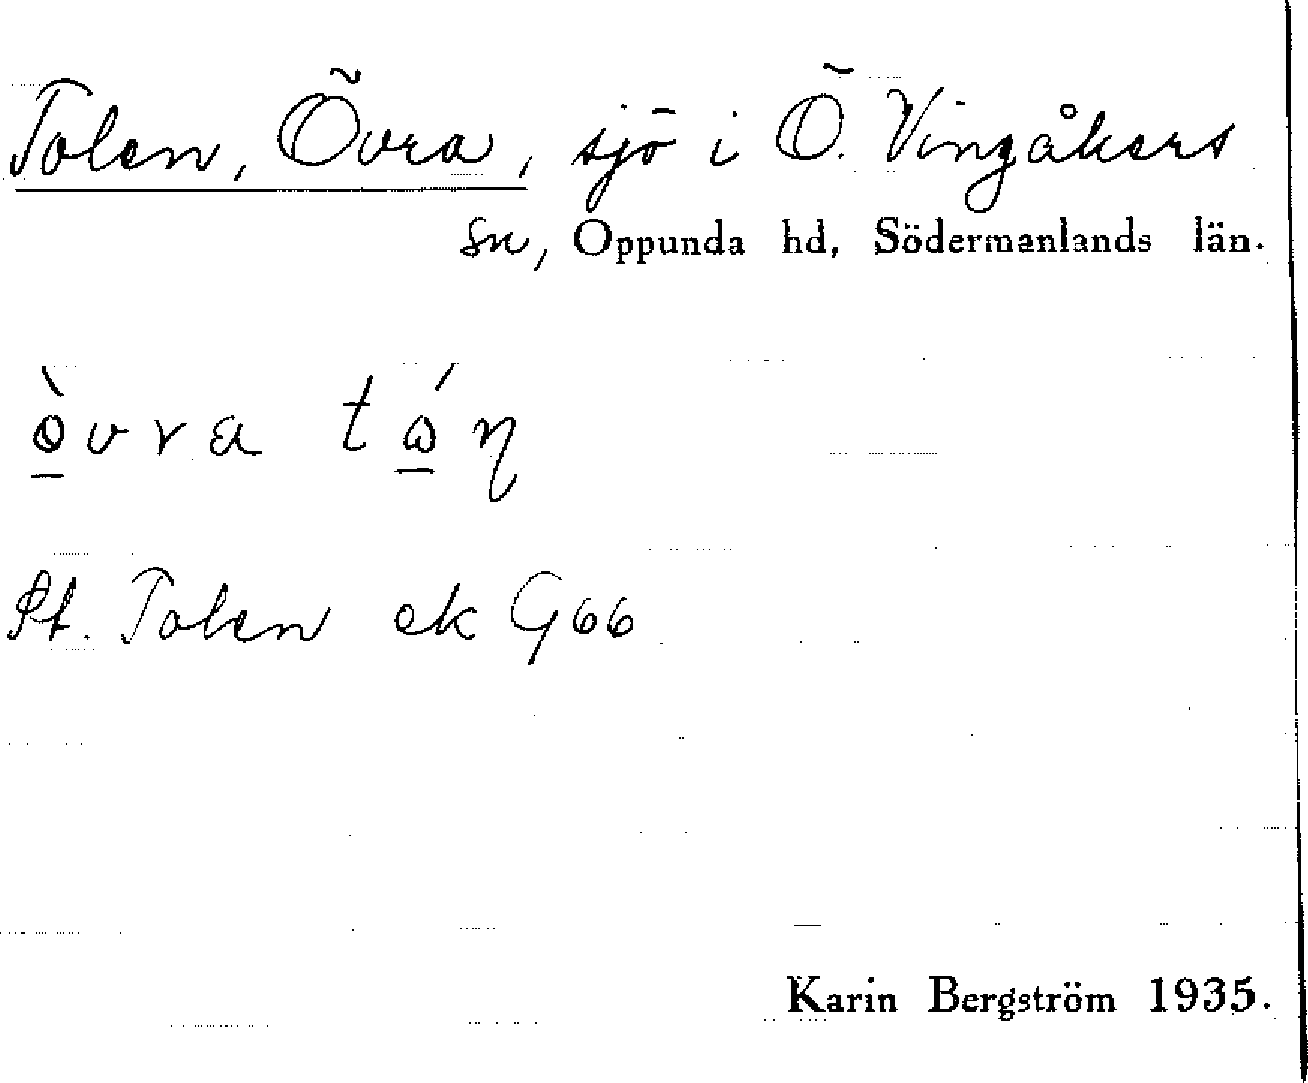 Tolen, Övra, sjö i Ö. Vingåkers
sn, Oppunda hd, Södermanlands län.
Pt. Tolen ek G66
Karin Bergström 1935.